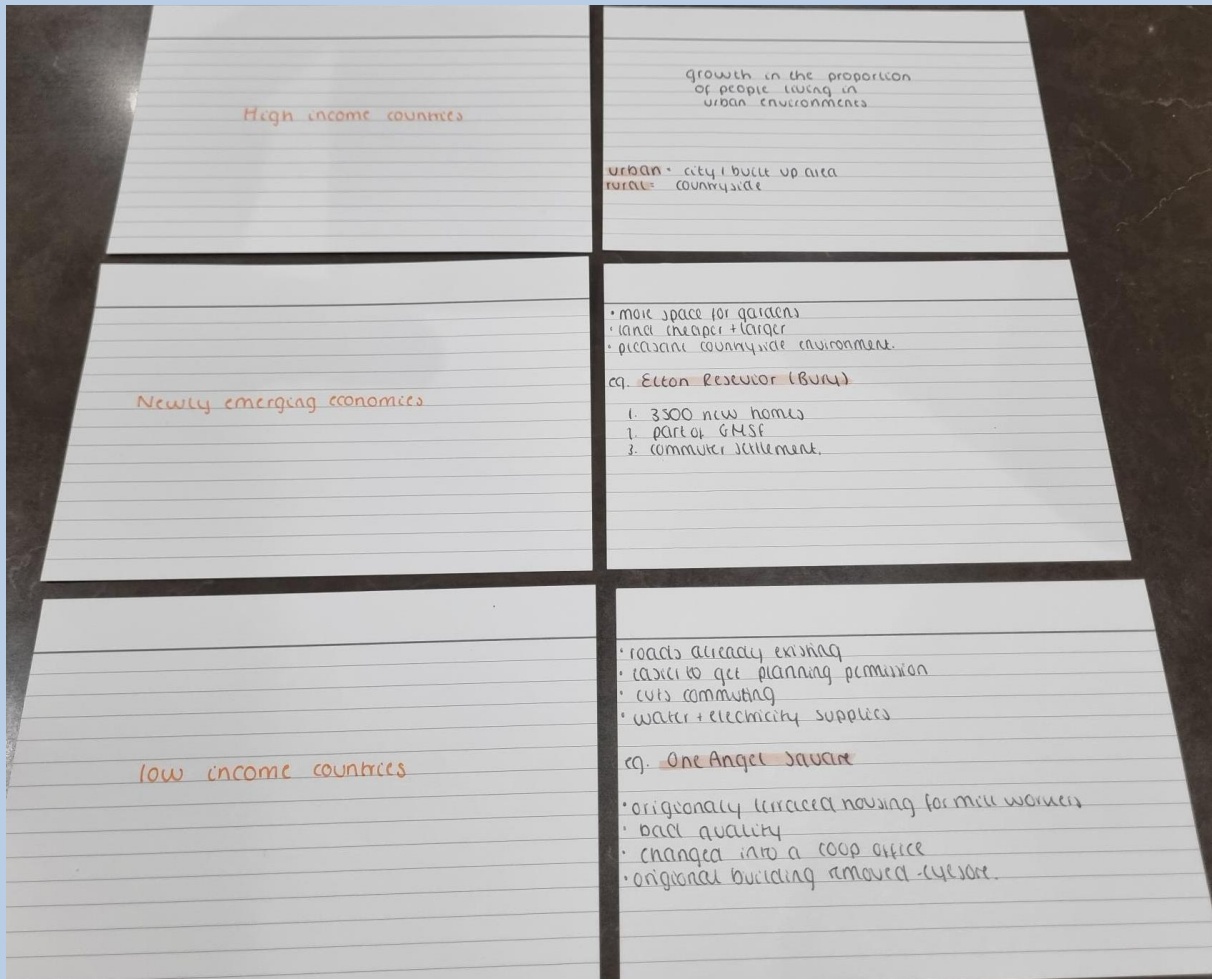 High income countries
growth in the proportion
of people living in
urban environments
urban = city / built up area
rural = countryside
Newly emerging economies
• more space for gardens
• land cheaper + larger
• pleasant countryside environment.
eg. Elton Resevior (Bury)
1. 3500 new homes
2. part of GMSF
3. commuter settlement.
low income countries
• roads already existing
• easier to get planning permission
• cuts commuting
• water + electricity supplies
eg. One Angel Square
• origionaly terraced housing for mill workers
• bad quality
• changed into a coop office
• origional building removed - eyesore.